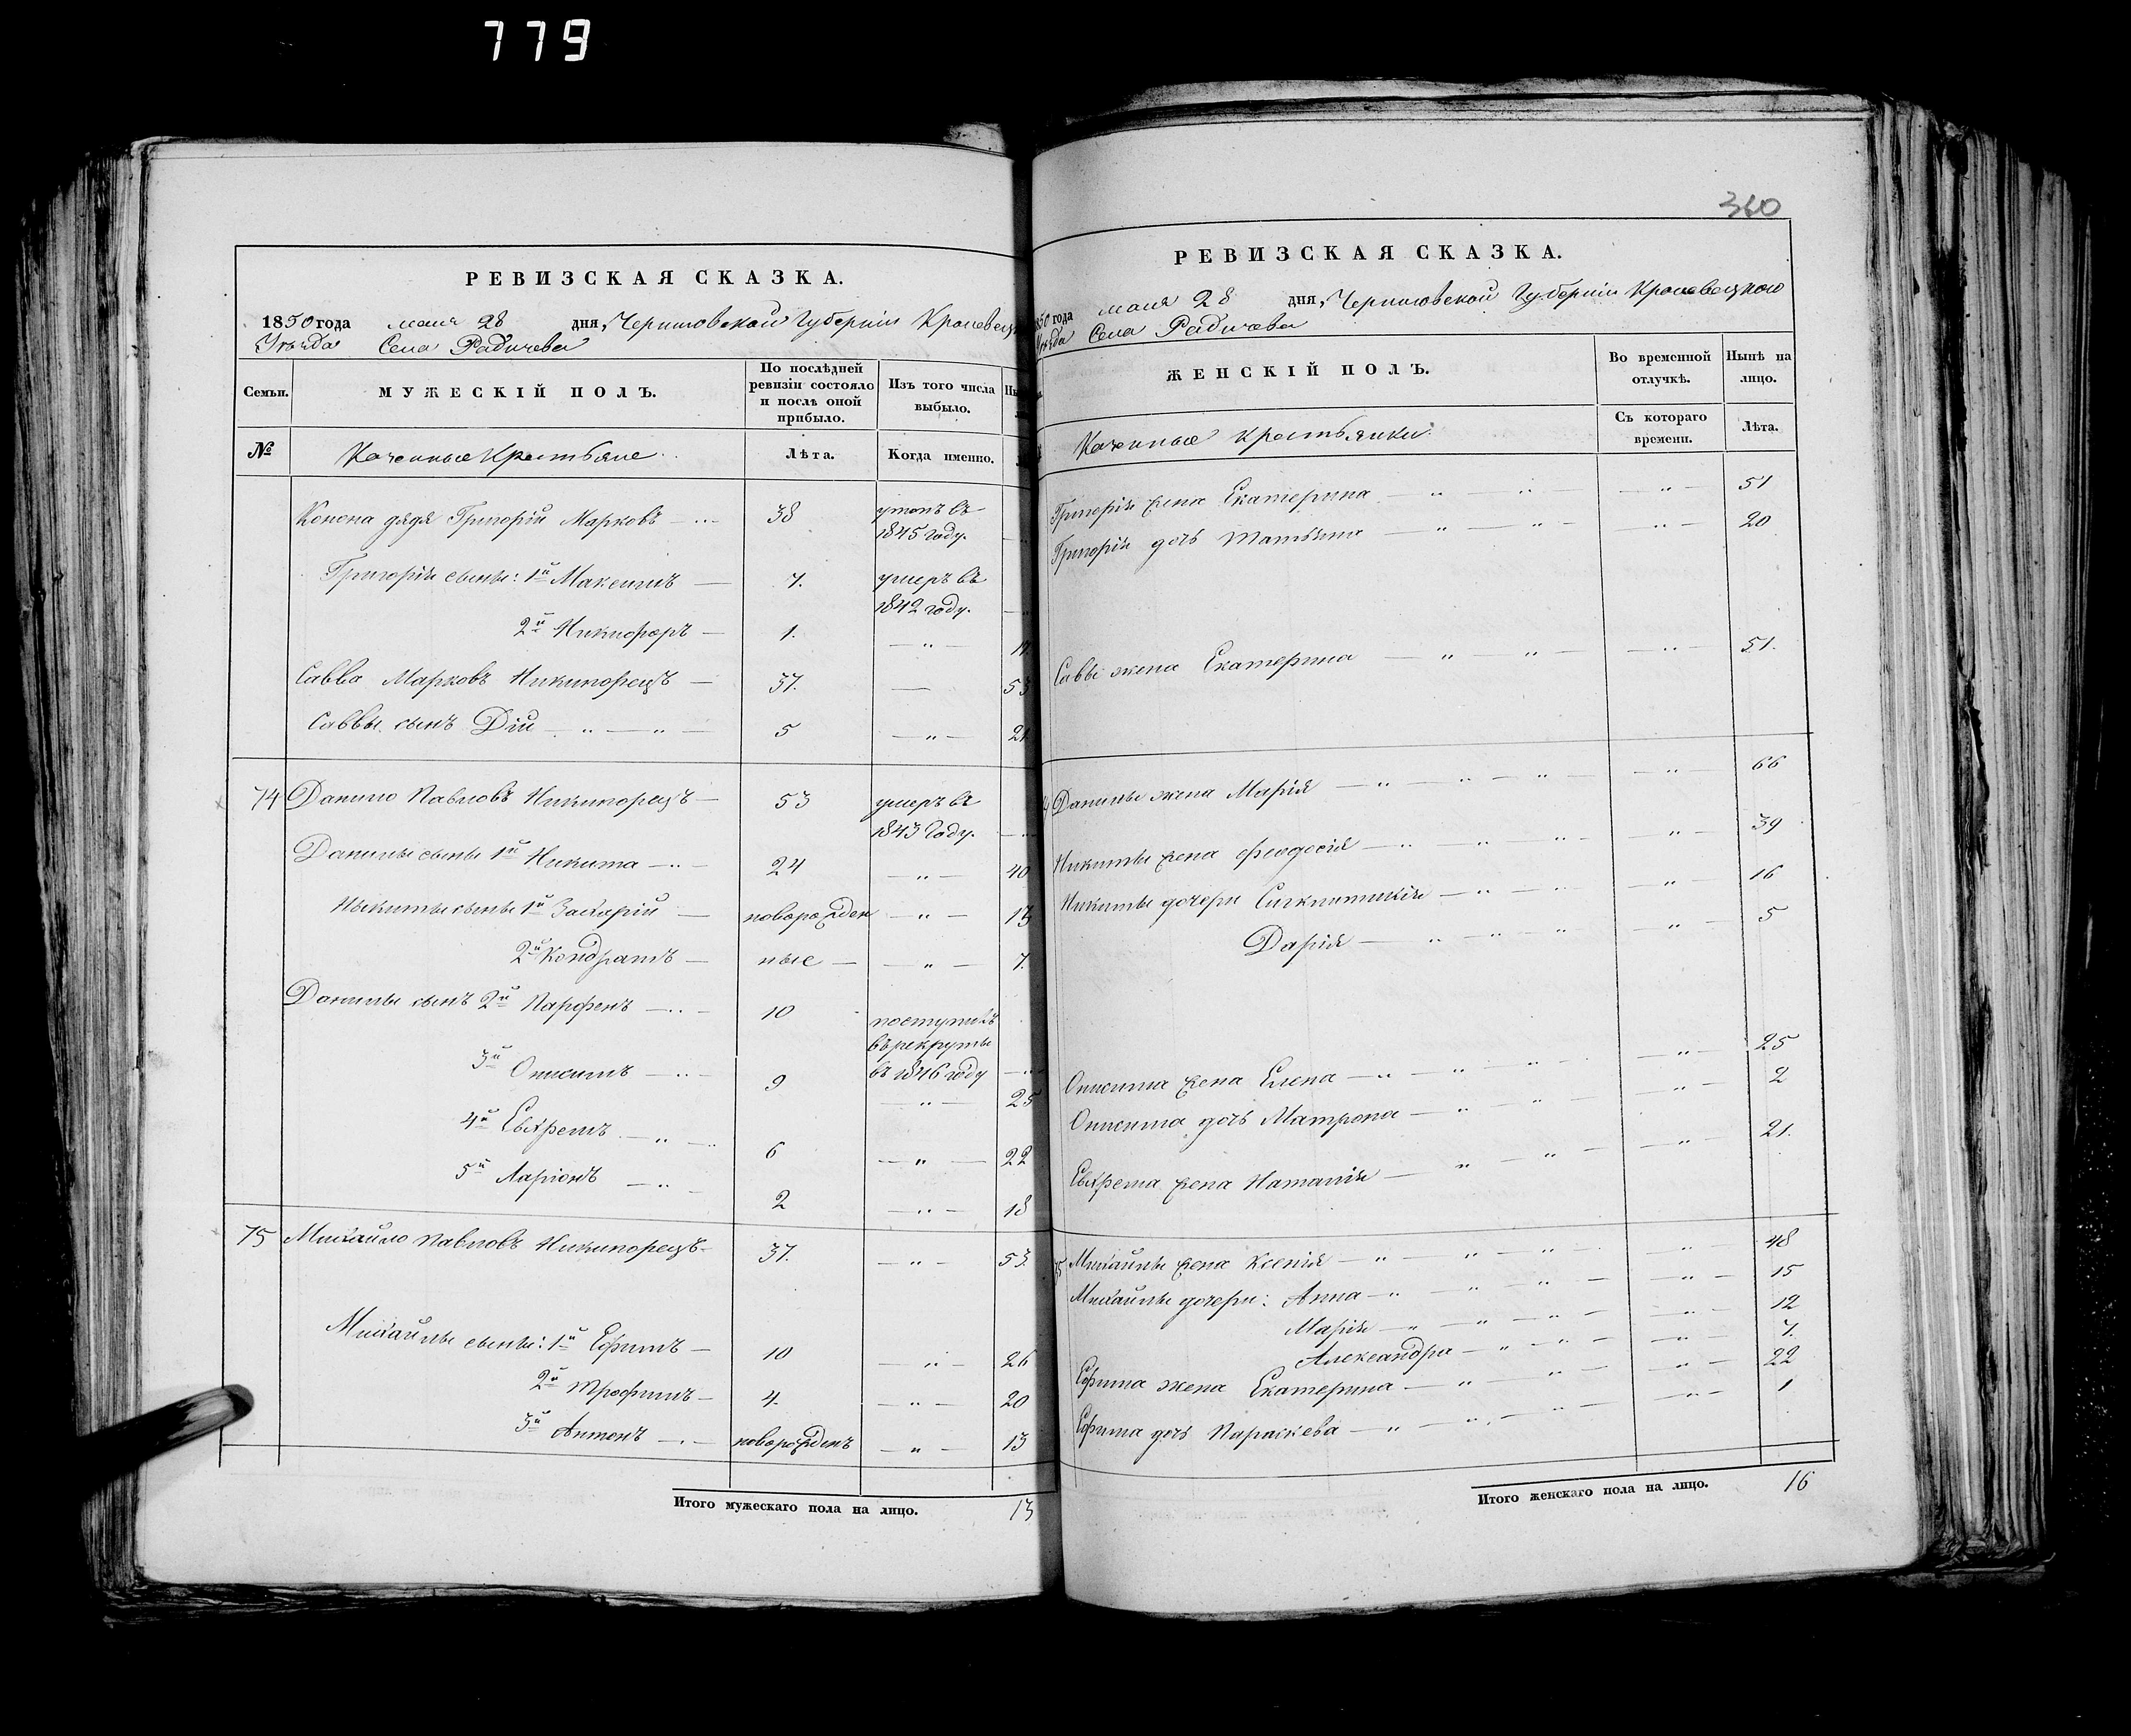 779
РЕВИЗСКАЯ СКАЗКА.
1850 года мая 28 дня, Черниговской Губерніи Кролевец
Уѣзда Села Радичева
Семьи.
МУЖЕСКІЙ ПОЛЪ.
По послѣдней ревизіи состояло и послѣ оной прибыло.
Изъ того числа выбыло.
№
Казенные Крестьяне
Лѣта.
Когда именно.
Конона дядя Григорій Марковъ — 38 утопъ въ
1845 году.
Григорія сыны: 1й Максимъ — 7. умеръ въ
1842 году.
2й Никифоръ — 1. — „ —
Савва Марковъ Никипорецъ — 37. — 53
Саввы сынъ Дій — „ — „ — 5 — „ — 21
74 Данило Павловъ Никипорецъ — 53 умеръ въ
1843 году.
Данилы сыны 1й Никита — „ — 24 — „ — 40
Никиты сыны 1й Захарій — новорожден — „ — 13
2й Кондратъ — ные — — „ — 7.
Данилы сынъ 2й Парфенъ — „ — 10 поступилъ
въ рекруты
въ 1846 году
3й Онисимъ — „ — 9 — „ — 25
4й Евхремъ — „ — 6 — „ — 22
5й Ларіонъ — „ — 2 — „ — 18
75 Михайло Павловъ Никипорецъ — 37. — „ — 53.
Михайлы сыны: 1й Ефимъ — 10 — „ — 26
2й Трофимъ — 4. — „ — 20
3й Антонъ — „ — новорожденъ — „ — 13
Итого мужескаго пола на лицо. 13
360
РЕВИЗСКАЯ СКАЗКА.
1850 года мая 28 дня, Черниговской Губерніи Кролевецкого
Уѣзда Села Радичева
ЖЕНСКІЙ ПОЛЪ.
Во временной отлучкѣ.
Нынѣ на лицо.
Казенные крестьянки
Съ котораго времени.
Лѣта.
Григорія жена Екатерина — „ — „ — — „ — 51
Григорія дочь Татьяна — „ — „ — „ — 20
Саввы жена Екатерина — „ — „ — — „ — 51.
Данилы жена Марія — „ — „ — „ — „ — 66
Никиты жена Феодосія — „ — „ — „ — „ — 39
Никиты дочери Синклитикія — „ — „ — „ — 16
Дарія — „ — „ — „ — „ — 5
Онисима жена Елена — „ — „ — „ — „ — 25
Онисима дочь Матрона — „ — „ — „ — 2
Евхрема жена Наталія — „ — „ — „ — 21.
Михайлы жена Ксенія — „ — „ — „ — „ — 48
Михайлы дочери: Анна — „ — „ — „ — „ — 15
Марія — „ — „ — „ — „ — 12
Александра — „ — „ — „ — 7.
Ефима жена Екатерина — „ — „ — „ — 22
Ефима дочь Параскева — „ — „ — „ — „ — 1
Итого женскаго пола на лицо. 16